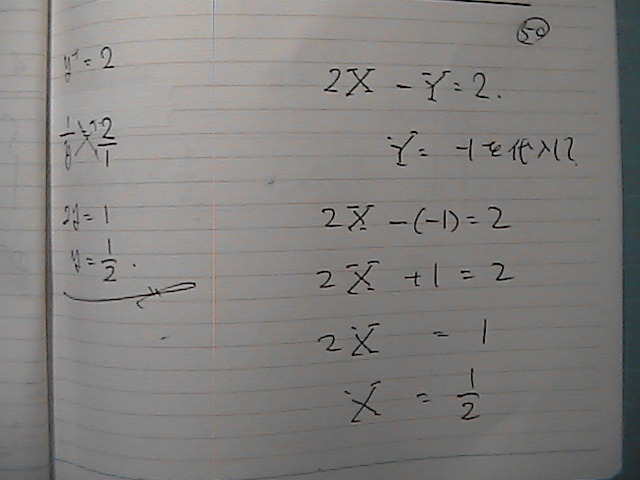 y⁻¹ = 2
1/y = 2/1
2y = 1
y = 1/2.
50
2X - Y = 2.
Y = -1を代入して
2X - (-1) = 2
2X + 1 = 2
2X = 1
X = 1/2